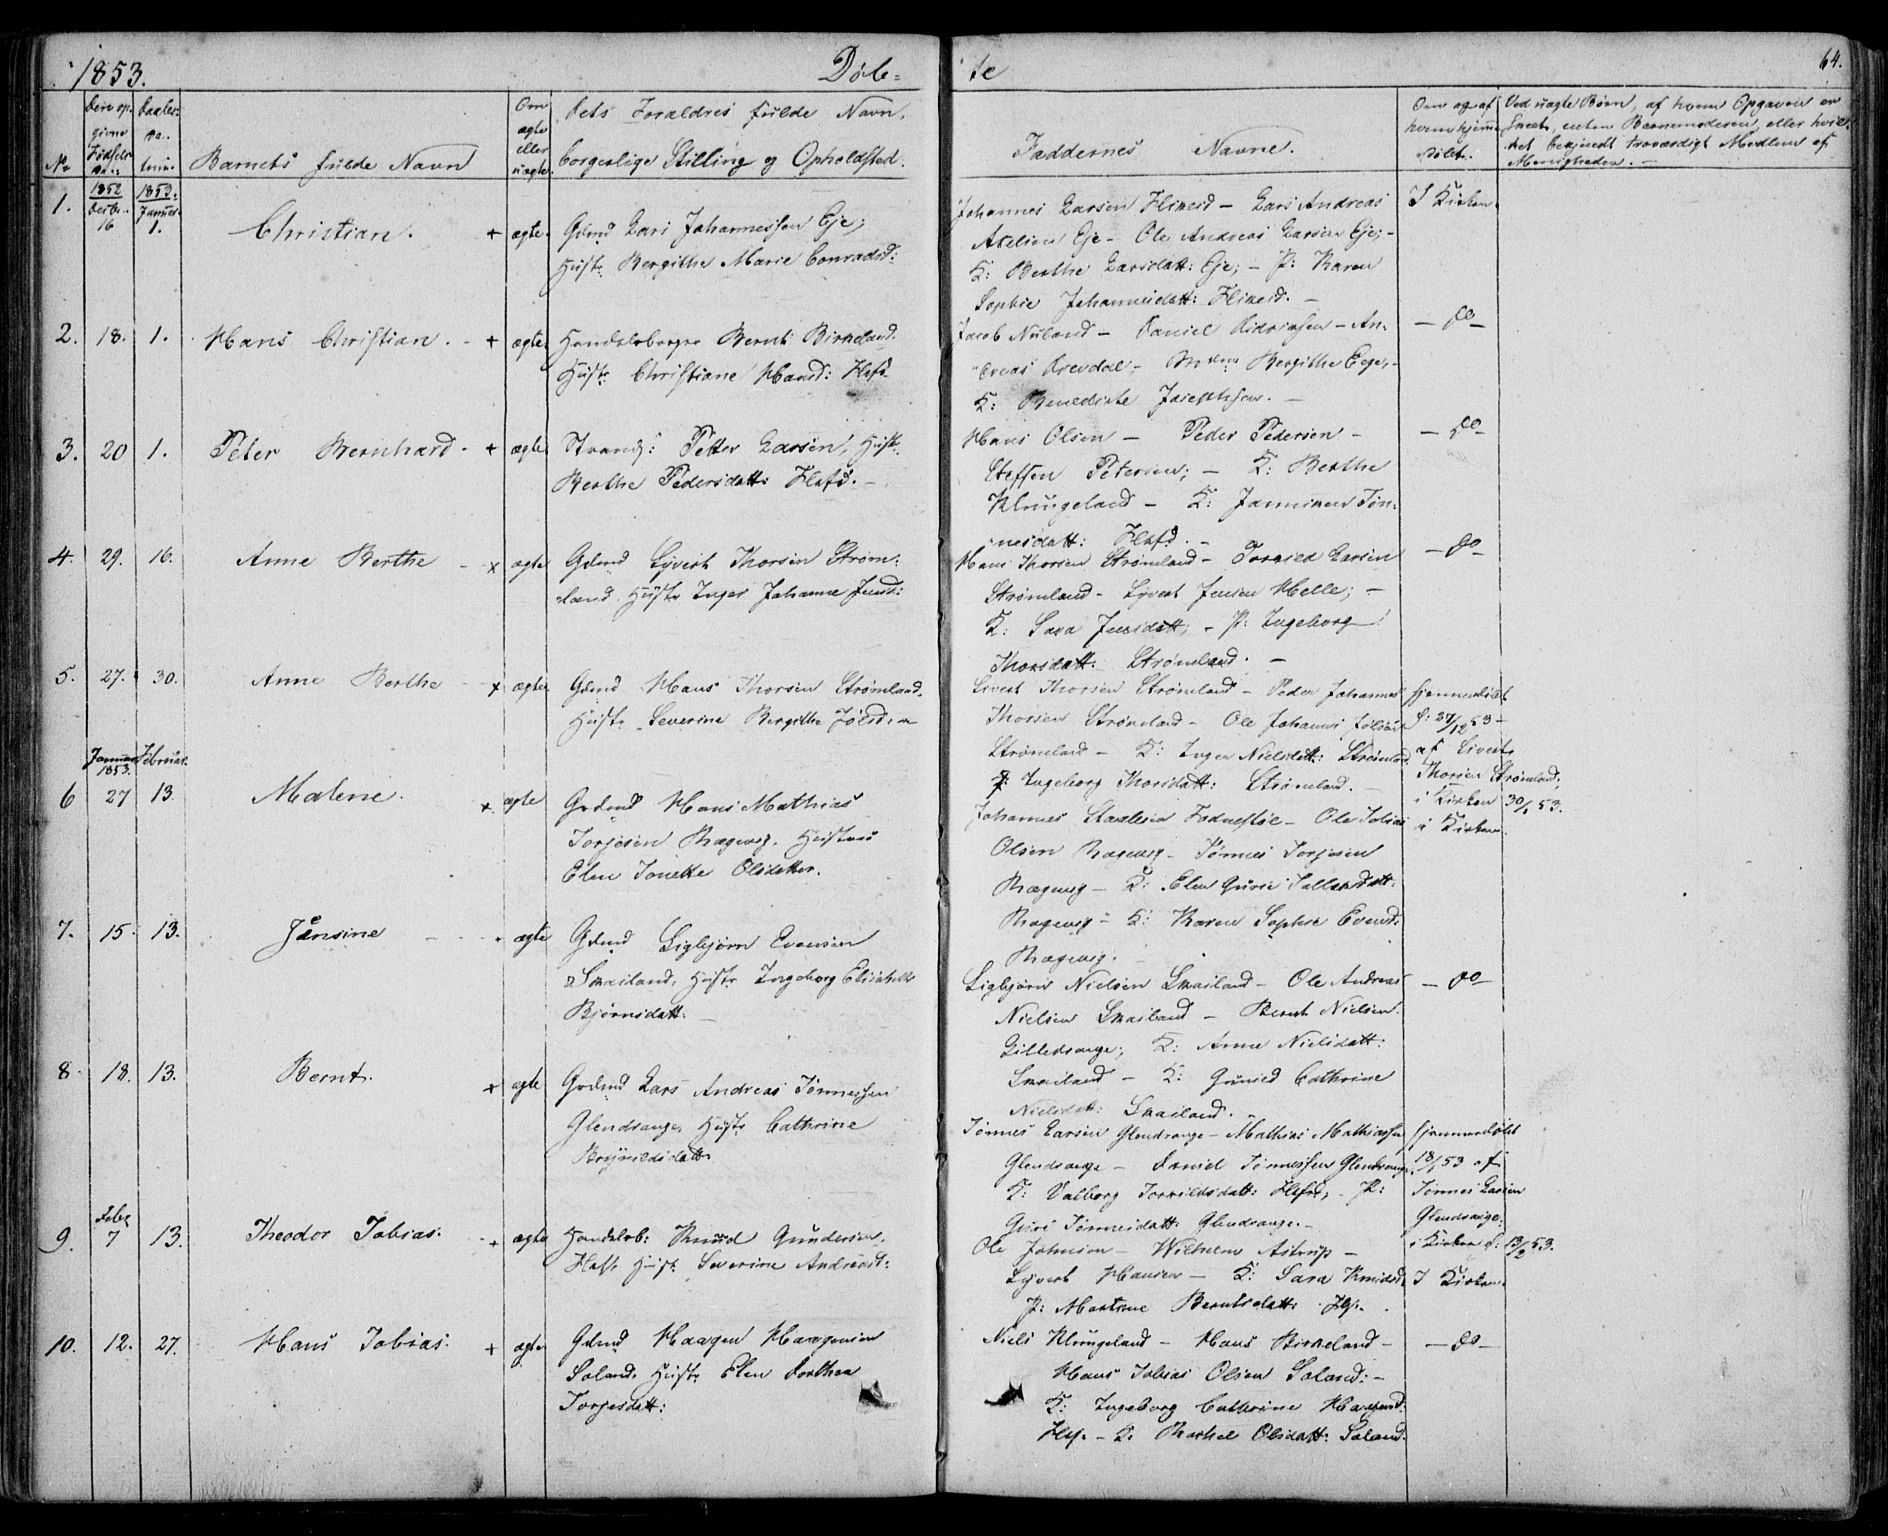 1853.
Døb=
te
64.
No
Barnets fulde Navn
Om ægte eller uægte
Dets Forældres fulde Navn,
borgerlige Stilling og Opholdsted.
Faddernes Navne.
Om og af hvem hjemmedøbt.
Ved uægte Børn, af hvem Opgaven er
skeet, enten Barnemoderen, eller hvil-
ket bekjendt troværdigt Medlem af
Menigheden. –
1852
1853.
1.
Decbr. 16
Januar 1.
Christian.
+ ægte.
Gdmd Lars Johannessen Eje;
Hustr. Bergithe Marie Conradsd:
Johannes Larsen Flikeid – Lars Andreas
Axelsen Eje – Ole Andreas Larsen Eje; –
K: Berthe Larsdatt: Eje; – P: Karen
Sophie Johannesdatt: Flikeid. –
I Kirken.
2. 18. 1. Hans Christian. – + ægte
Handelsborger Bernt Birkeland.
Hustr. Christiane Hansd: Flkfd
Jacob Nuland – Daniel Didriksen – An-
dreas Drevdal – Mdm Bergithe Eege, –
K: Benedicte Josephsen. –
– do –
3. 20 1. Peter Bernhard. + ægte
Strands: Petter Larsen, Hustr.
Berthe Pedersdatt: Flkfd. –
Hans Olsen – Peder Pedersen –
Steffen Petersen; – K: Berthe
Klungeland – K: Janniken Tøn-
nesdatt: Flkfd. –
– do –
4. 29. 16. Anne Berthe – x ægte
Gdmd Sivert Thorsen Strøm-
land. Hustr Inger Johanne Jensd:
Hans Thorsen Strømland – Torkild Larsen
Strømland – Sivert Jensen Helle; –
K: Sara Jensdatt; – P: Ingeborg
Thorsdatt: Strømland. –
– do –
5. 27. 30. Anne Berthe – x ægte
Gdmd Hans Thorsen Strømland.
Hustr. Severine Bergithe
Sivert Thorsen Strømland – Peder Johannes
Thorsen Strømland – Ole Johannes
Strømland – K: Inger Nielsdatt: Strømland.
P: Ingeborg Thorsdatt: Strømland. –
hjemmedøbt
d: 27/12 53 –
af Sivert
Thorsen Strømland;
i Kirken 30/1 53.
Januar 1853.
Februar.
6 27 13. Malene. x. ægte
Grdmd Hans Mathias
Torjesen Rægevig. Hustrus
Elen Tonette Olsdatter.
Johannes Staalesen – Ole Tobias
Olsen Rægevig – Tønnes Torjesen
Rægevig – K: Elen Gurie
Rægevig – K: Karen Sophie Evensd:
Rægevig.
i Kirken.
7. 15. 13. Jensine – ægte
Gdmd Sigbjørn Evensen
Skailand, Hustr Ingeborg Elisabeth
Bjørnsdatt. –
Sigbjørn Nielsen Skailand – Ole Andreas
Nielsen Skailand – Bernt Nielsen
Lilledrange; K: Anne Nielsdatt:
Skailand – K: Gunild Cathrine
Nielsdatt: Skailand.
– do –
8 18. 13. Bernt. x ægte
Grdmd Lars Andreas Tønnessen
Glendrange, Hustr Cathrine
Brynildsdatt.
Tønnes Larsen Glendrange – Mathias Mathiassen
Glendrange – Daniel Tønnessen Glendrange.
K: Valborg Torkildsdatt: Flkfd; – P:
Guri Tønnesdatt: Glendrange. –
hjemmedøbt
18/1 53 af
Tønnes Larsen
Glendrange;
i Kirken d: 13/2 53.
Febr
9. 7 13. Theodor Tobias. + ægte
Handelsb: Knud Gundersen,
Flkfd Hustr. Severine Andreasd:
Ole Johnsen – Wilhelm Astrup –
Sivert Hansen – K: Sara Knudsd.
P: Martine Berntsdatt:
I Kirken.
10. 12. 27. Hans Tobias. + ægte
Gdmd Haagen Haagensen
Loland. Hustr Elen Dorthea
Torjesdatt:
Niels Klungeland – Hans Birkeland –
Hans Tobias Olsen Loland: –
K: Ingeborg Cathrine Haagensd:
K: Rachel Olsdatt: Loland.
– do –